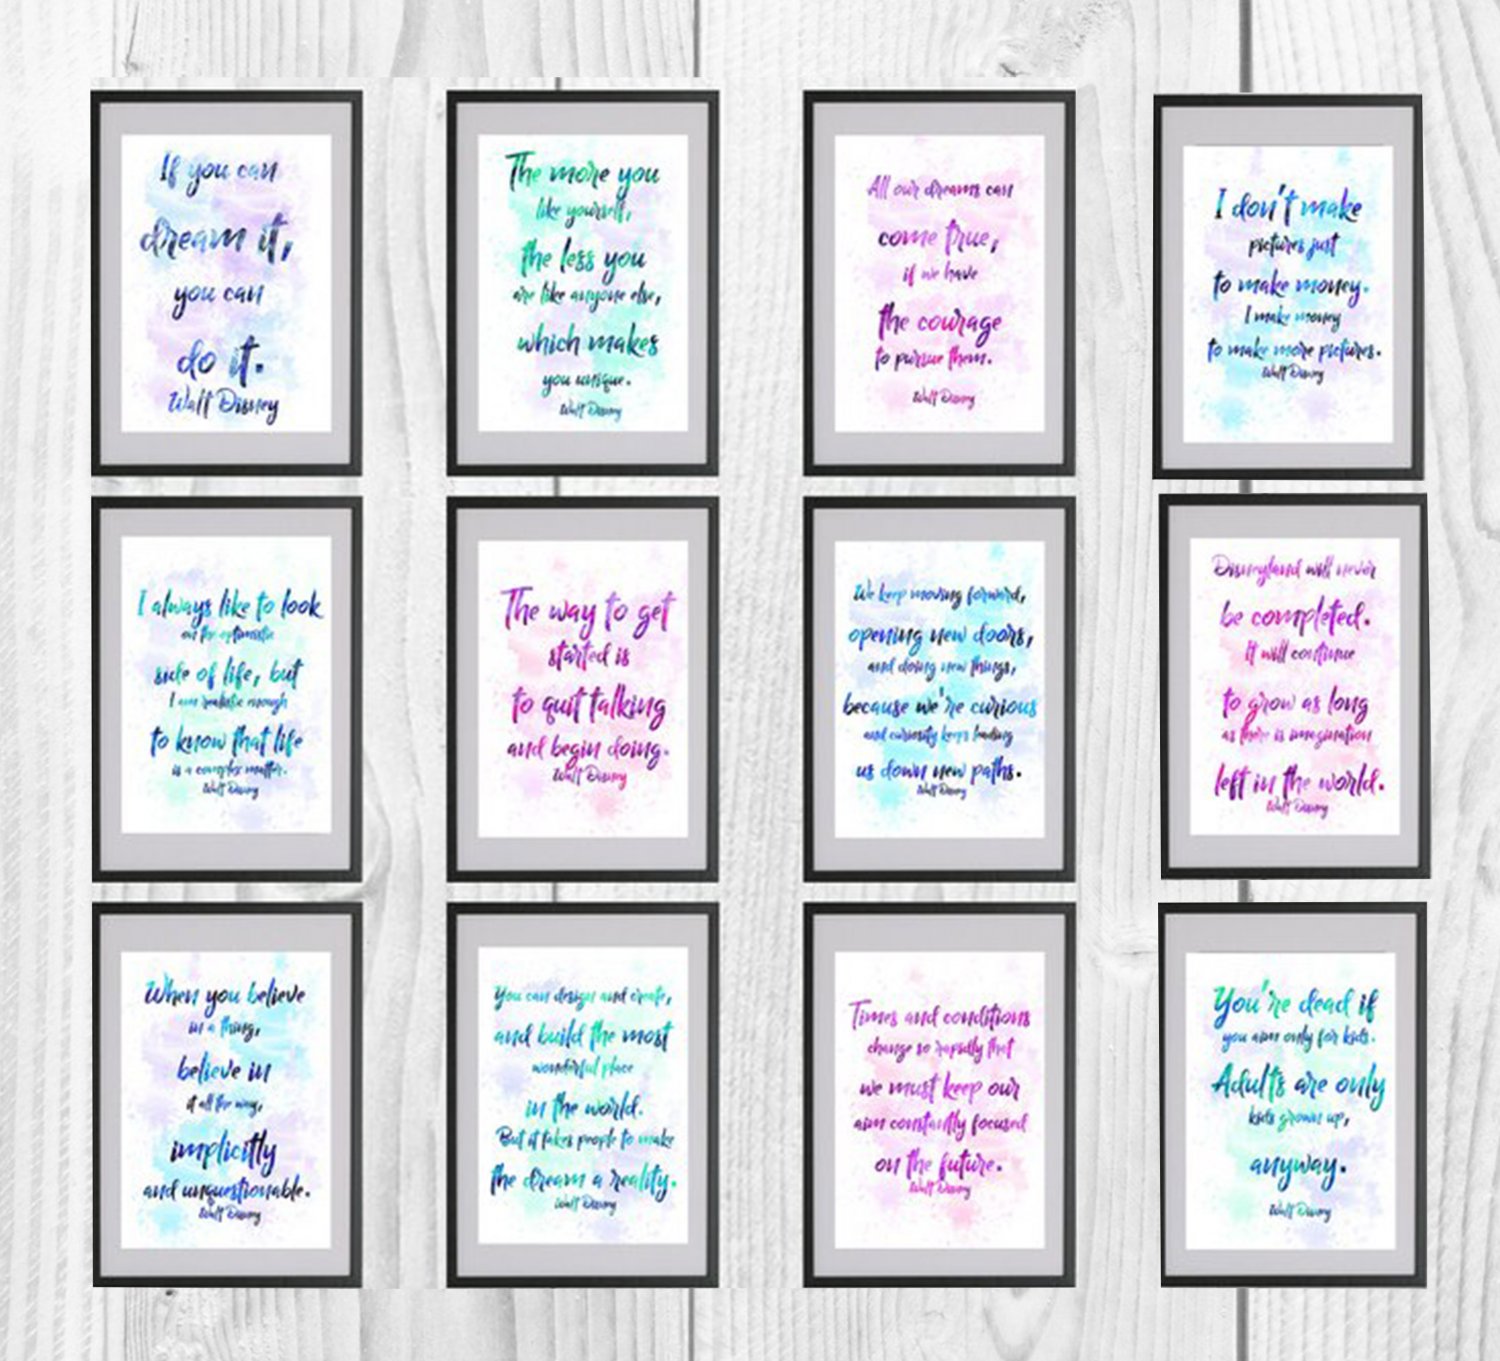 If you can
dream it,
you can
do it.
Walt Disney
The more you
like yourself,
the less you
are like anyone else,
which makes
you unique.
Walt Disney
All our dreams can
come true,
if we have
the courage
to pursue them.
Walt Disney
I don't make
pictures just
to make money.
I make money
to make more pictures.
Walt Disney
I always like to look
on the optimistic
side of life, but
I am realistic enough
to know that life
is a complex matter.
Walt Disney
The way to get
started is
to quit talking
and begin doing.
Walt Disney
We keep moving forward,
opening new doors,
and doing new things,
because we're curious
and curiosity keeps leading
us down new paths.
Walt Disney
Disneyland will never
be completed.
It will continue
to grow as long
as there is imagination
left in the world.
Walt Disney
When you believe
in a thing,
believe in
it all the way,
implicitly
and unquestionable.
Walt Disney
You can design and create,
and build the most
wonderful place
in the world.
But it takes people to make
the dream a reality.
Walt Disney
Times and conditions
change so rapidly that
we must keep our
aim constantly focused
on the future.
Walt Disney
You're dead if
you aim only for kids.
Adults are only
kids grown up,
anyway.
Walt Disney